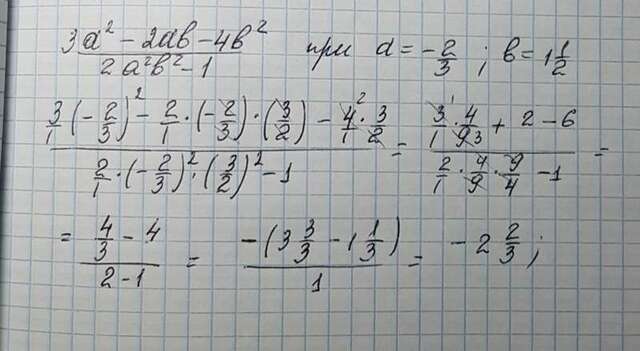 (3a² - 2ab - 4b²)/(2a²b² - 1) при a = -2/3 ; b = 1 1/2
(3/1 (-2/3)² - 2/1 · (-2/3) · (3/2) - 4²/1 · 3/2)/(2/1 · (-2/3)² · (3/2)² - 1) = (3¹/1 · 4/9₃ + 2 - 6)/(2/1 · 4/9 · 9/4 - 1) =
= (4/3 - 4)/(2 - 1) = (-(3 3/3 - 1 1/3))/1 = -2 2/3 ;